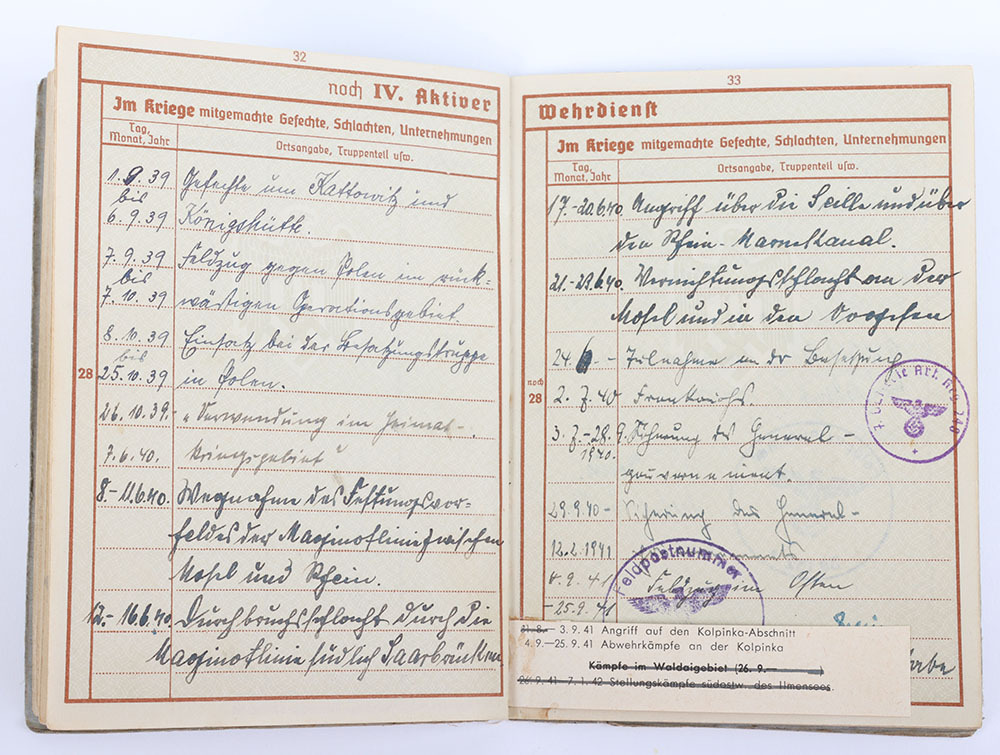 32
noch IV. Aktiver
Im Kriege mitgemachte Gefechte, Schlachten, Unternehmungen
Tag, Monat, Jahr
Ortsangabe, Truppenteil usw.
1.9.39 Gefechte um Kattowitz und
bis
6.9.39 Königshütte.
7.9.39 Feldzug gegen Polen im rück-
bis
7.10.39 wärtigen Operationsgebiet
8.10.39 Einsatz bei der Besatzungstruppe
bis
28
25.10.39 in Polen.
26.10.39.- "Verwendung im Heimat-
7.6.40. kriegsgebiet"
8.-11.6.40. Wegnahme des Festungsvor-
feldes der Maginotlinie zwischen
Mosel und Rhein.
12.-16.6.40. Durchbruchsschlacht durch die
Maginotlinie südlich Saarbrücken
33
Wehrdienst
Im Kriege mitgemachte Gefechte, Schlachten, Unternehmungen
Tag, Monat, Jahr
Ortsangabe, Truppenteil usw.
17.-20.6.40. Angriff über die Seille und über
den Rhein-Marnekanal.
21.-23.6.40. Vernichtungsschlacht an der
Mosel und in den Vogesen
24.6.- Teilnahme an der Besetzung
noch 28
2.7.40 Frankreichs.
3.7.-28.9.1940. Sicherung des General-
gouvernement.
29.9.40- Sicherung des General-
12.2.1941
9.41 Feldzug im Osten
-25.9.41
Feldpostnummer
31.8.- 3.9.41 Angriff auf den Kolpinka-Abschnitt
4.9.-25.9.41 Abwehrkämpfe an der Kolpinka
Kämpfe im Waldaigebiet (26.9.-
26.9.41 - 7.1.42 Stellungskämpfe südostw. des Ilmensees.